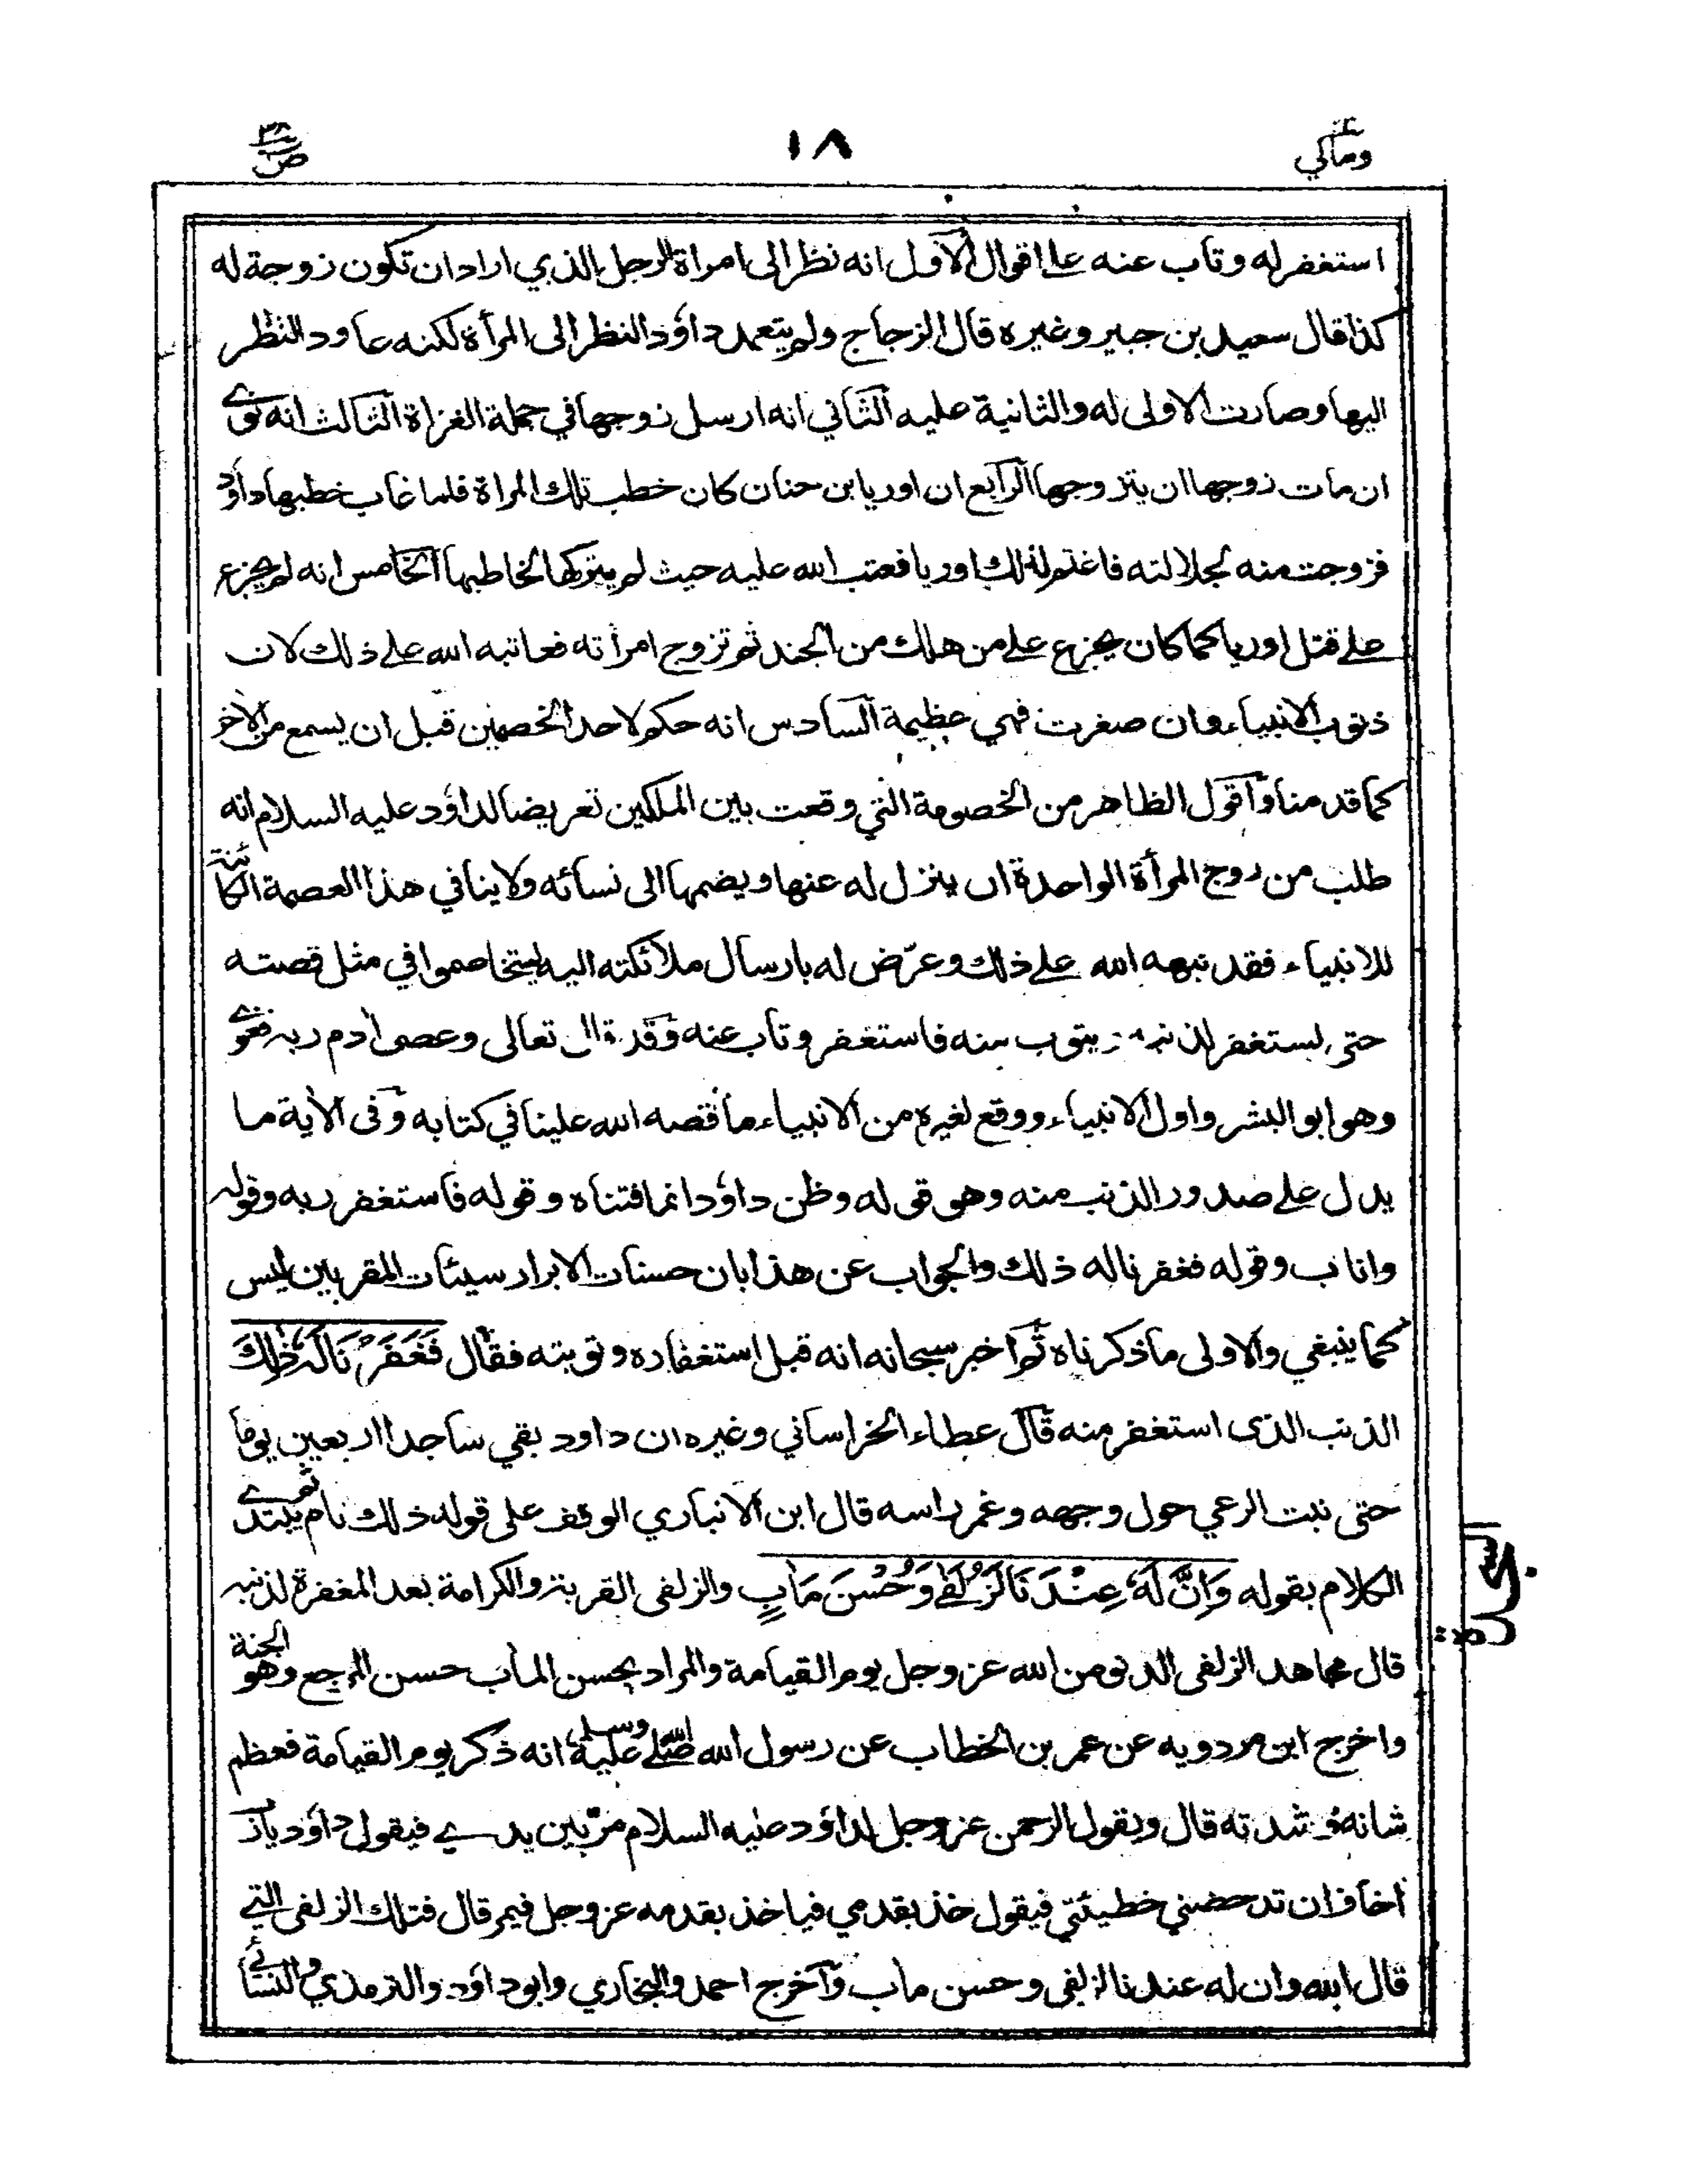 ومالي
١٨
ص
استغفر له وتاب عنه على اقوال الاول انه نظر الى امراة الرجل الذي اراد ان تكون زوجة له
كذا قال سعيد بن جبير وغيره قال الزجاج ولم يتعمد داؤد النظر الى المرأة لكنه عاود النظر
اليها وصارت الاولى له والثانية عليه الثاني انه ارسل زوجها في جملة الغزاة الثالث انه نوى
ان مات زوجها ان يتزوجها الرابع ان اوريا بن حنان كان خطب تلك المراة فلما غاب خطبها داؤد
فزوجت منه لجلالته فاغتم لذلك اوريا فعتب الله عليه حيث لم يتركها لخاطبها الخامس انه لم يجزع
على قتل اوريا كما كان يجزع على من هلك من الجند ثم تزوج امرأته فعاتبه الله على ذلك لان
ذنوب الانبياء وان صغرت فهي عظيمة السادس انه حكم لاحد الخصمين قبل ان يسمع من الاخر
كما قدمنا واقول الظاهر من الخصومة التي وقعت بين الملكين تعريضا لداؤد عليه السلام انه
طلب من زوج المرأة الواحدة ان ينزل له عنها ويضمها الى نسائه ولا ينافي هذا العصمة الكائنة
للانبياء فقد نبهه الله على ذلك وعرّض له بارسال ملائكته اليه ليتخاصموا في مثل قصته
حتى يستغفر لذنبه ويتوب منه فاستغفر وتاب عنه وقد قال تعالى وعصى أدم ربه فغوى
وهو ابو البشر واول الانبياء ووقع لغيره من الانبياء ما قصه الله علينا في كتابه وفى الأية ما
يدل على صدور الذنب منه وهو قوله وظن داؤد انما فتناه وقوله فاستغفر ربه وقوله
واناب وقوله فغفرنا له ذلك والجواب عن هذا بان حسنات الابرار سيئات المقربين ليس
كما ينبغي والاولى ما ذكرناه ثم اخبر سبحانه انه قبل استغفاره وتوبته فقال فَغَفَرْنَا لَهُ ذٰلِكَ
الذنب الذى استغفر منه قال عطاء الخراساني وغيره ان داود بقي ساجدا اربعين يوما
حتى نبت الرعي حول وجهه وغمر راسه قال ابن الانباري الوقف على قوله ذلك تام ثم يبتدى
الكلام بقوله وَاِنَّ لَهٗ عِنْدَنَا لَزُلْفٰى وَحُسْنَ مَاٰبٍ والزلفى القربة والكرامة بعد المغفرة لذنبه
قال مجاهد الزلفى الدنو من الله عز وجل يوم القيامة والمراد بحسن المأب حسن المرجع وهو الجنة
واخرج ابن مردويه عن عمر بن الخطاب عن رسول الله صلى الله عليه وسلم انه ذكر يوم القيامة فعظم
شانه وشدته قال ويقول الرحمن عز وجل لداؤد عليه السلام مرّ بين يدي فيقول داؤد يا رب
اخاف ان تدحضني خطيئتي فيقول خذ بقدمي فياخذ بقدمه عز وجل فيمر قال فتلك الزلفى التي
قال الله وان له عندنا لزلفى وحسن ماب وأخرج احمد والبخاري وابو داؤد والترمذي والنسائي
السجدة